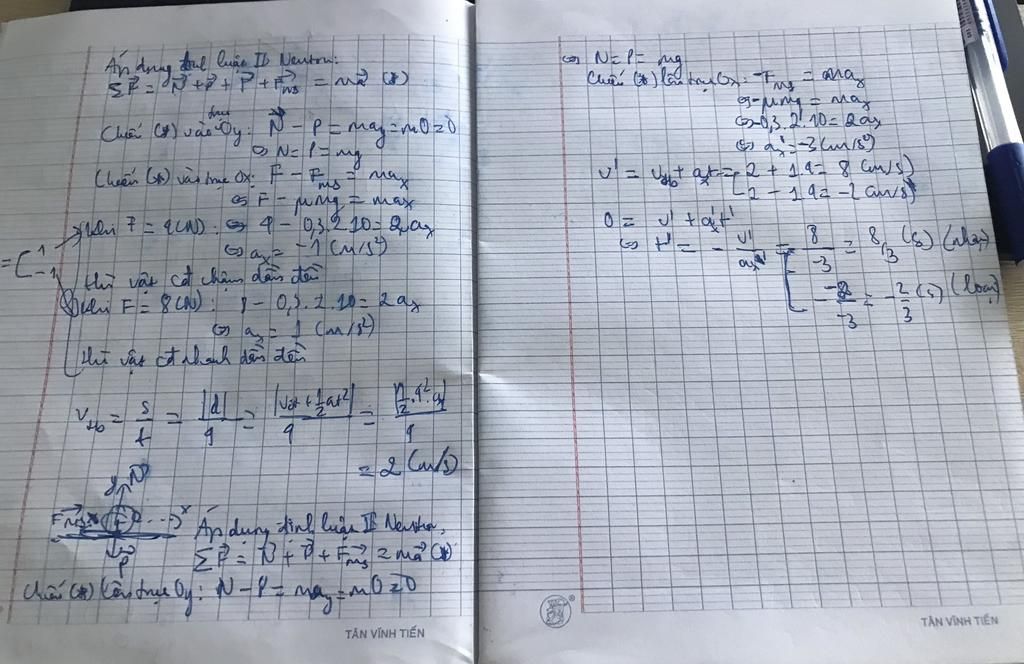 Áp dụng định luật II Newton:
ΣF⃗ = N⃗ + F⃗ + P⃗ + F⃗ms = ma⃗ (*)
trục
Chiếu (*) vào Oy: N⃗ - P = may = m0 = 0
⇔ N = P = mg
Chiếu (*) vào trục Ox: F - Fms = max
⇔ F - μmg = max
Khi F = 4(N): ⇔ 4 - 0,3.2.10 = 2ax
⇔ ax = -1 (m/s²)
= [ 1
-1
thì vật cđ chậm dần đều
Khi F = 8(N): 8 - 0,3.2.10 = 2ax
⇔ ax = 1 (m/s²)
thì vật cđ nhanh dần đều
vtb = s/t = |d|/4 = |v0t + 1/2at²|/4 = |1/2.4².ax|/4
= 2 (m/s)
y N⃗
F⃗ms x
P⃗
Áp dụng định luật II Newton,
ΣF⃗ = N⃗ + P⃗ + F⃗ms = ma⃗ (*)
Chiếu (*) lên trục Oy: N - P = may = m0 = 0
TÂN VĨNH TIẾN
⇔ N = P = mg
Chiếu (*) lên trục Ox: -Fms = max
⇔ -μmg = max
⇔ -0,3.2.10 = 2ax
⇔ a'x = -3 (m/s²)
v' = vtb + axt = [ 2 + 1.4 = 8 (m/s)
2 - 1.4 = -2 (m/s)
0 = v' + a'xt'
⇔ t' = - v'/ax' = [ - 8/-3 = 8/3 (s) (nhận)
- -2/-3 = -2/3 (s) (loại)
TÂN VĨNH TIẾN